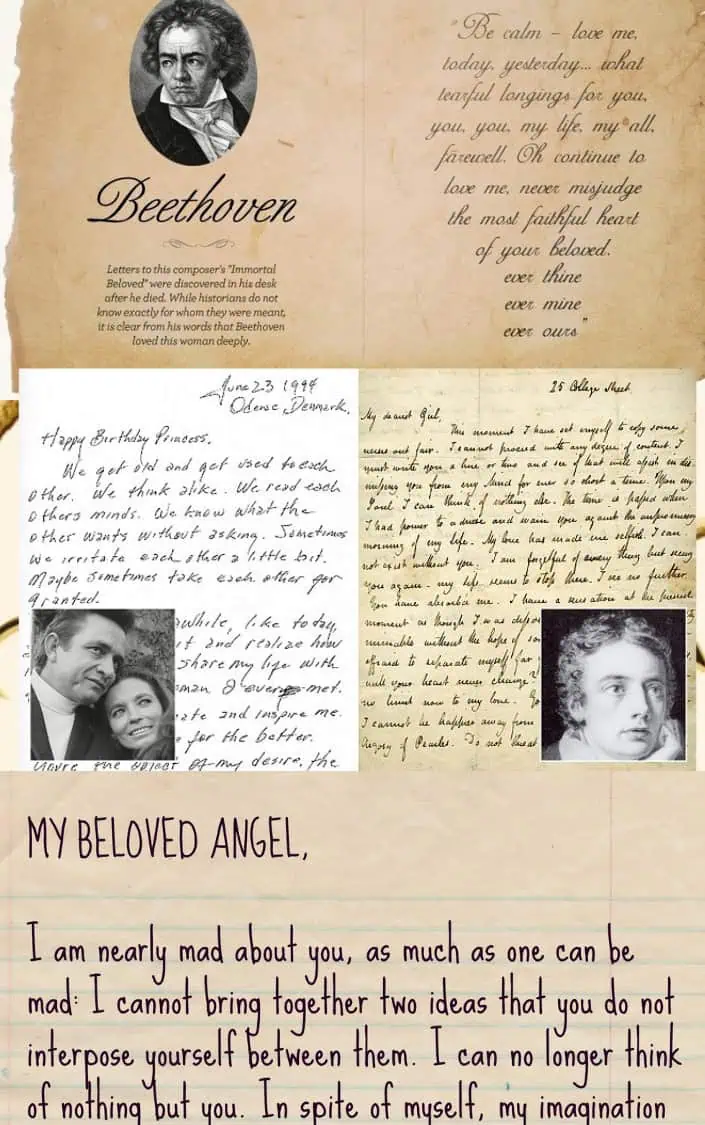 Beethoven
Letters to this composer's "Immortal
Beloved" were discovered in his desk
after he died. While historians do not
know exactly for whom they were meant,
it is clear from his words that Beethoven
loved this woman deeply.
"Be calm – love me,
today, yesterday... what
tearful longings for you,
you, you, my life, my all,
farewell. Oh continue to
love me, never misjudge
the most faithful heart
of your beloved.
ever thine
ever mine
ever ours"
June 23 1994
Odense, Denmark.
Happy Birthday Princess,
We get old and get used to each
other. We think alike. We read each
others minds. We know what the
other wants without asking. Sometimes
we irritate each other a little bit.
Maybe sometimes take each other for
granted.
awhile, like today,
it and realize how
share my life with
oman I ever met.
ate and inspire me.
for the better.
You're the object of my desire, the
25 College Street.
My dearest Girl,
This moment I have set myself to copy some
verses out fair. I cannot proceed with any degree of content. I
must write you a line or two and see if that will assist in dis
missing you from my Mind for ever so short a time. Upon my
Soul I can think of nothing else. The time is passed when
I had power to advise and warn you against the unpromising
morning of my life. My love has made me selfish. I can
not exist without you. I am forgetful of every thing but seeing
you again. my life seems to stop there. I see no further.
You have absorb'd me. I have a sensation at the present
moment as though I was
miserable without the hope of
afraid to separate myself far
will your heart never change?
no limit now to my love.
I cannot be happier away from
Argosy of Pearles. Do not threat
MY BELOVED ANGEL,
I am nearly mad about you, as much as one can be
mad: I cannot bring together two ideas that you do not
interpose yourself between them. I can no longer think
of nothing but you. In spite of myself, my imagination